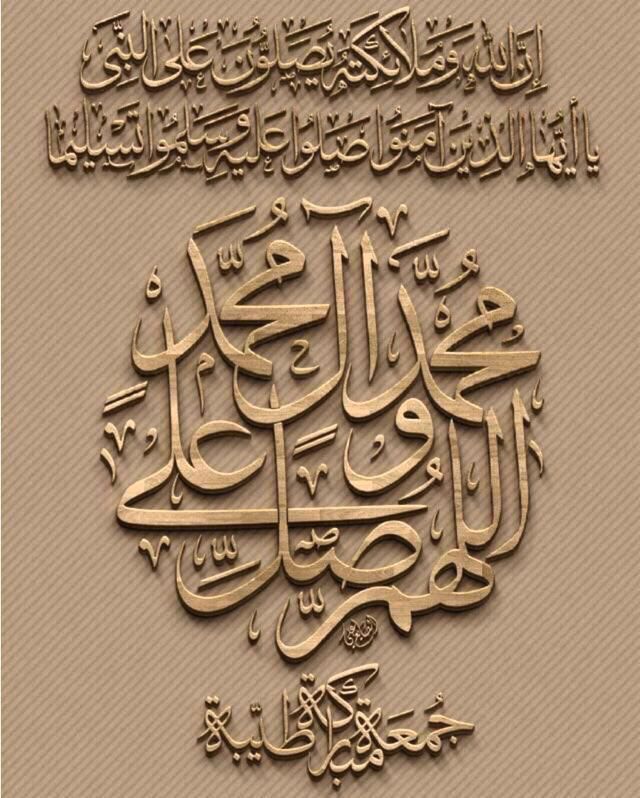 إِنَّ اللهَ وَمَلَائِكَتَهُ يُصَلُّونَ عَلَى النَّبِيِّ
يَا أَيُّهَا الَّذِينَ آمَنُوا صَلُّوا عَلَيْهِ وَسَلِّمُوا تَسْلِيمًا
اللهم صلِّ على
محمد وآل محمد
جُمعَة مباركة طيّبة